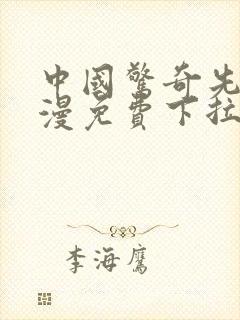 中國驚奇先
漫免費下拉
李海鷹